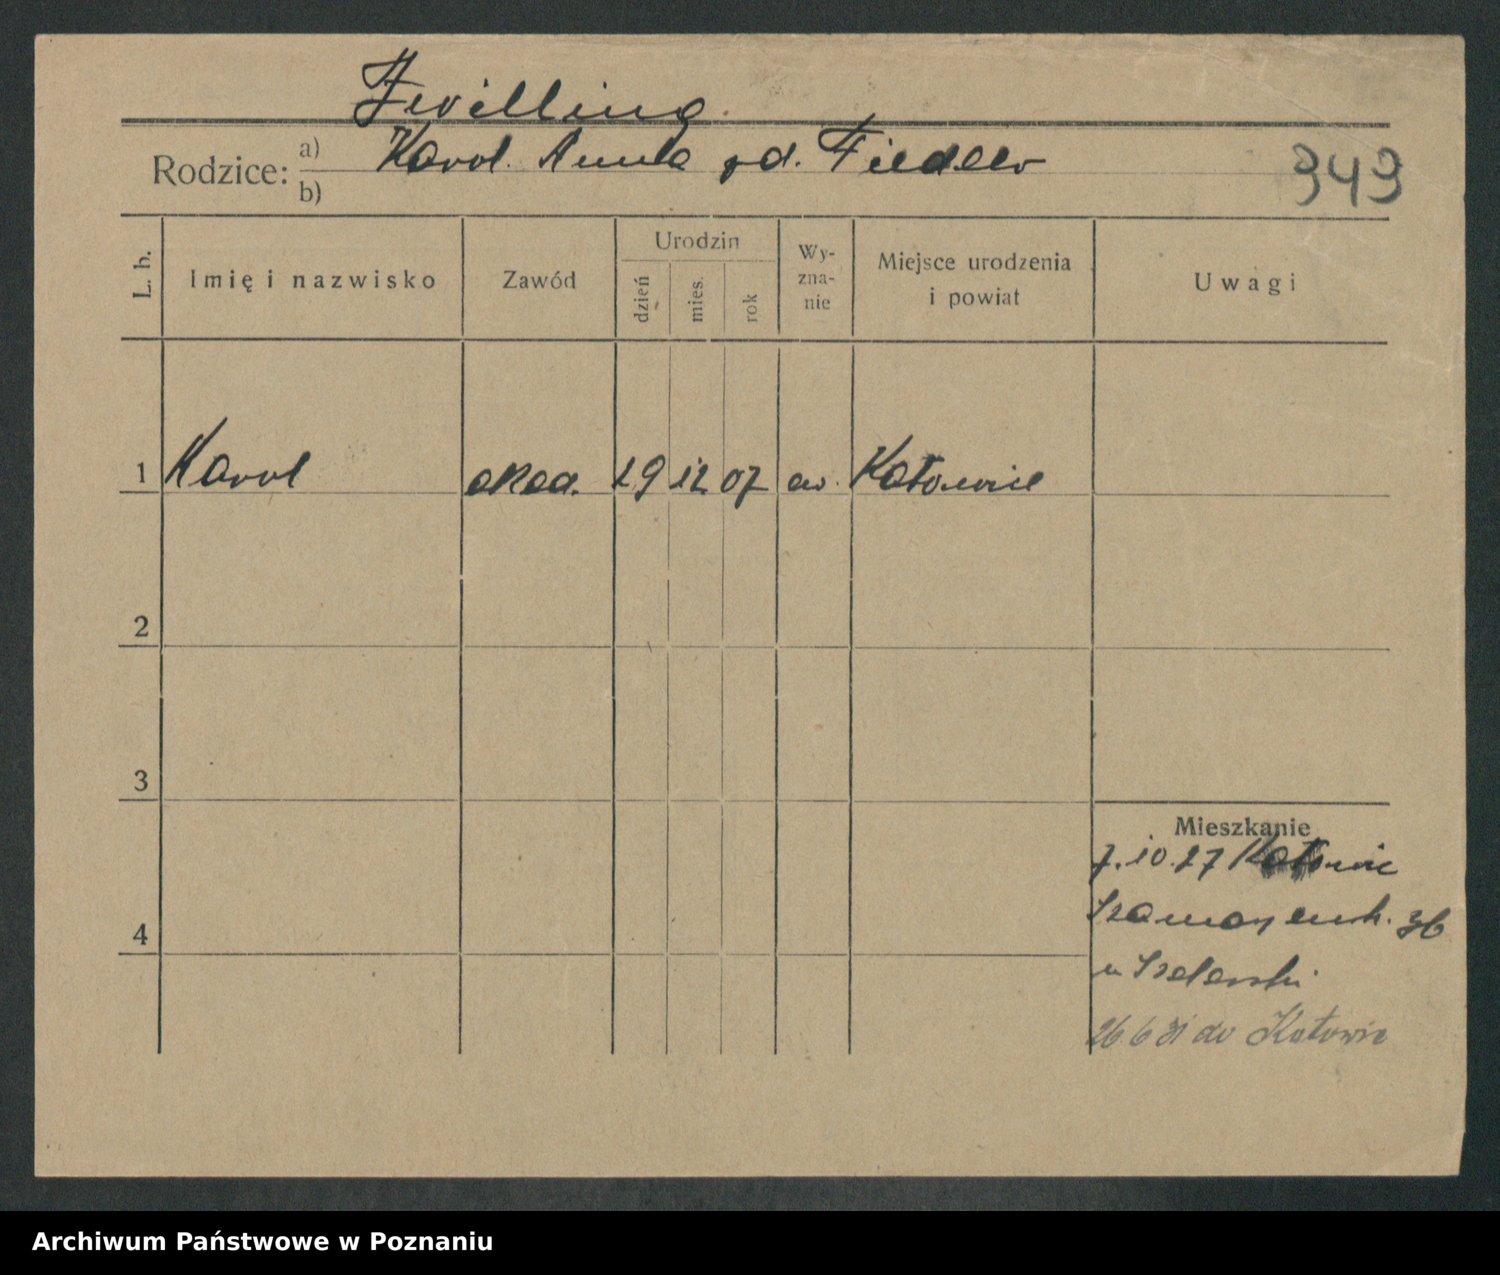 Zwilling
Rodzice: a) Karol. Anna rd. Fiedler
b)
343
L. b.
Imię i nazwisko
Zawód
Urodzin
dzień
mies.
rok
Wy-
zna-
nie
Miejsce urodzenia
i powiat
Uwagi
1 Karol akad. 29 12 07 ew. Katowice
2
3
4
Mieszkanie
7.10.27 Katowic
Szamarzewsk. 36
u
26 6 31 do Katowic
Archiwum Państwowe w Poznaniu